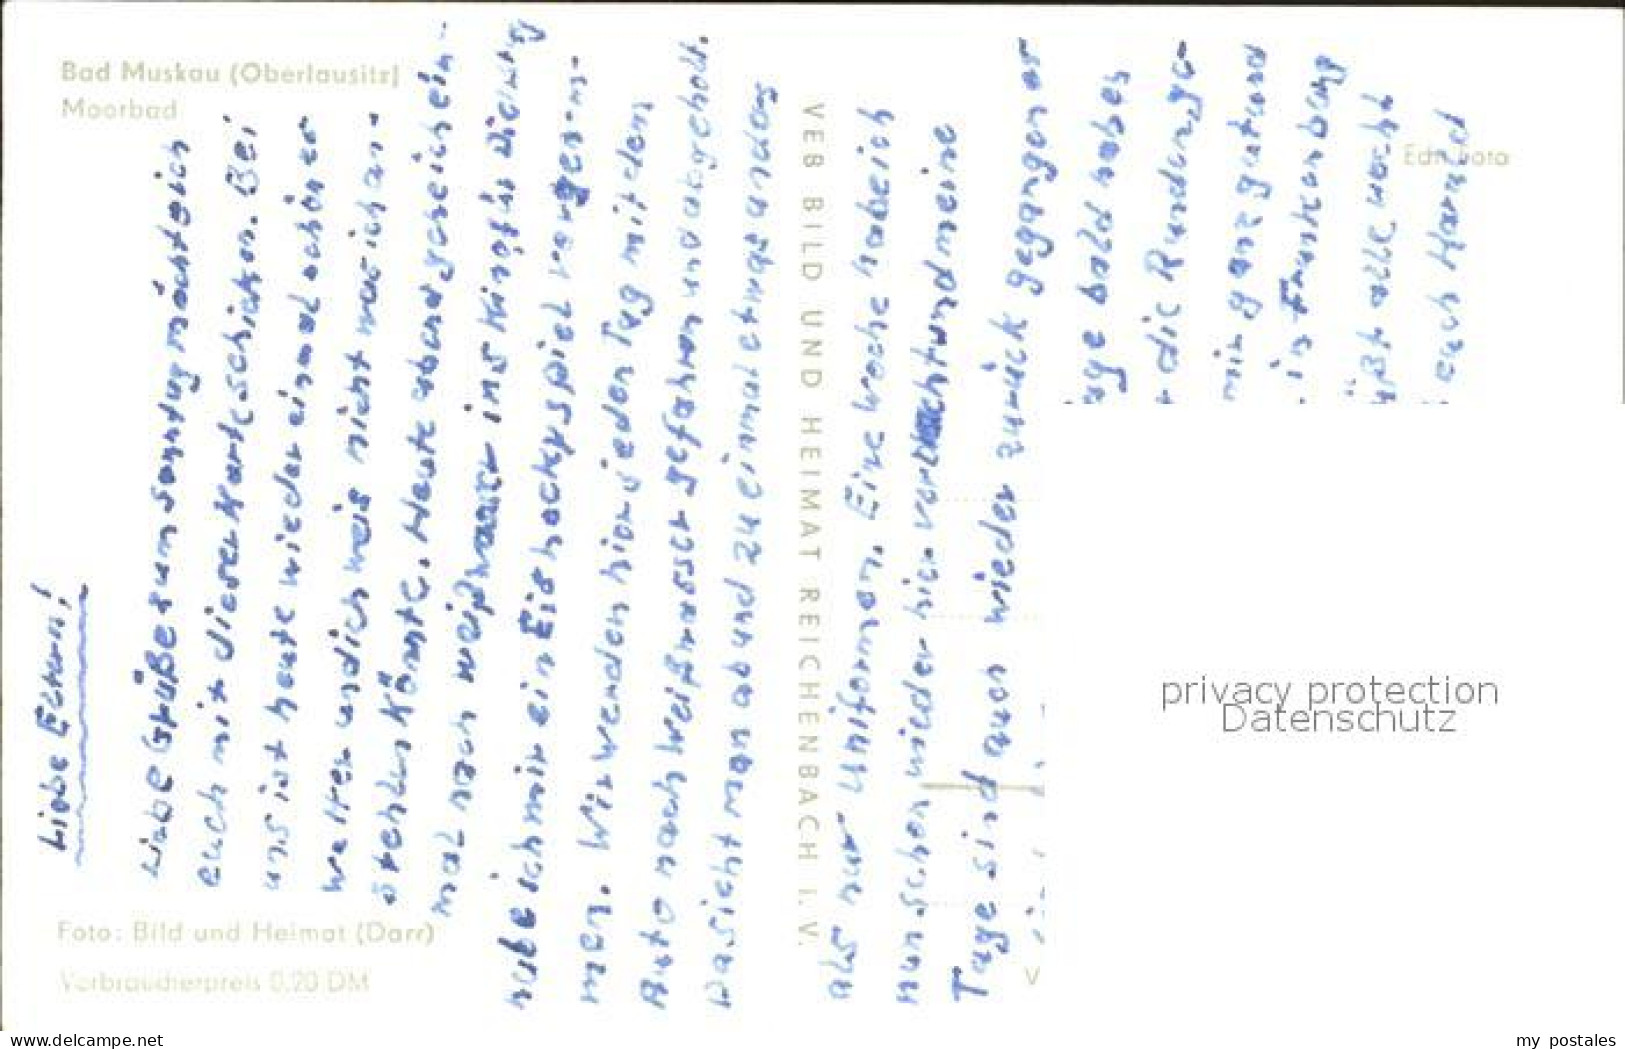 Bad Muskau (Oberlausitz)
Moorbad
Liebe Eltern!
Liebe Grüße zum Sonntag möchte ich
euch mit dieser Karte schicken. Bei
uns ist heute wieder einmal schönes
Wetter und ich weis nicht was ich an-
stehlen könnte. Heute abend gehe ich ein-
mal nach Weißwasser ins Kino für Dienstag
habe ich mir ein Eishockyspiel vorgenom-
men. Wir werden hier jeden Tag mit dem
Auto nach Weißwasser gefahren und abgeholt.
Da sieht man ab und zu einmal etwas anders
VEB BILD UND HEIMAT REICHENBACH I. V.
als nur Uniformen. Eine Woche habe ich
nun schon wieder hier verbracht und meine
Tage sind auch wieder zurück gegangen
bald haben
die Runden
mir ganz gut und
in Frankenberg
üßt alle
euch Harald
Foto: Bild und Heimat (Darr)
Verbraucherpreis 0,20 DM
V
privacy protection
Datenschutz
www.delcampe.net
my_postales